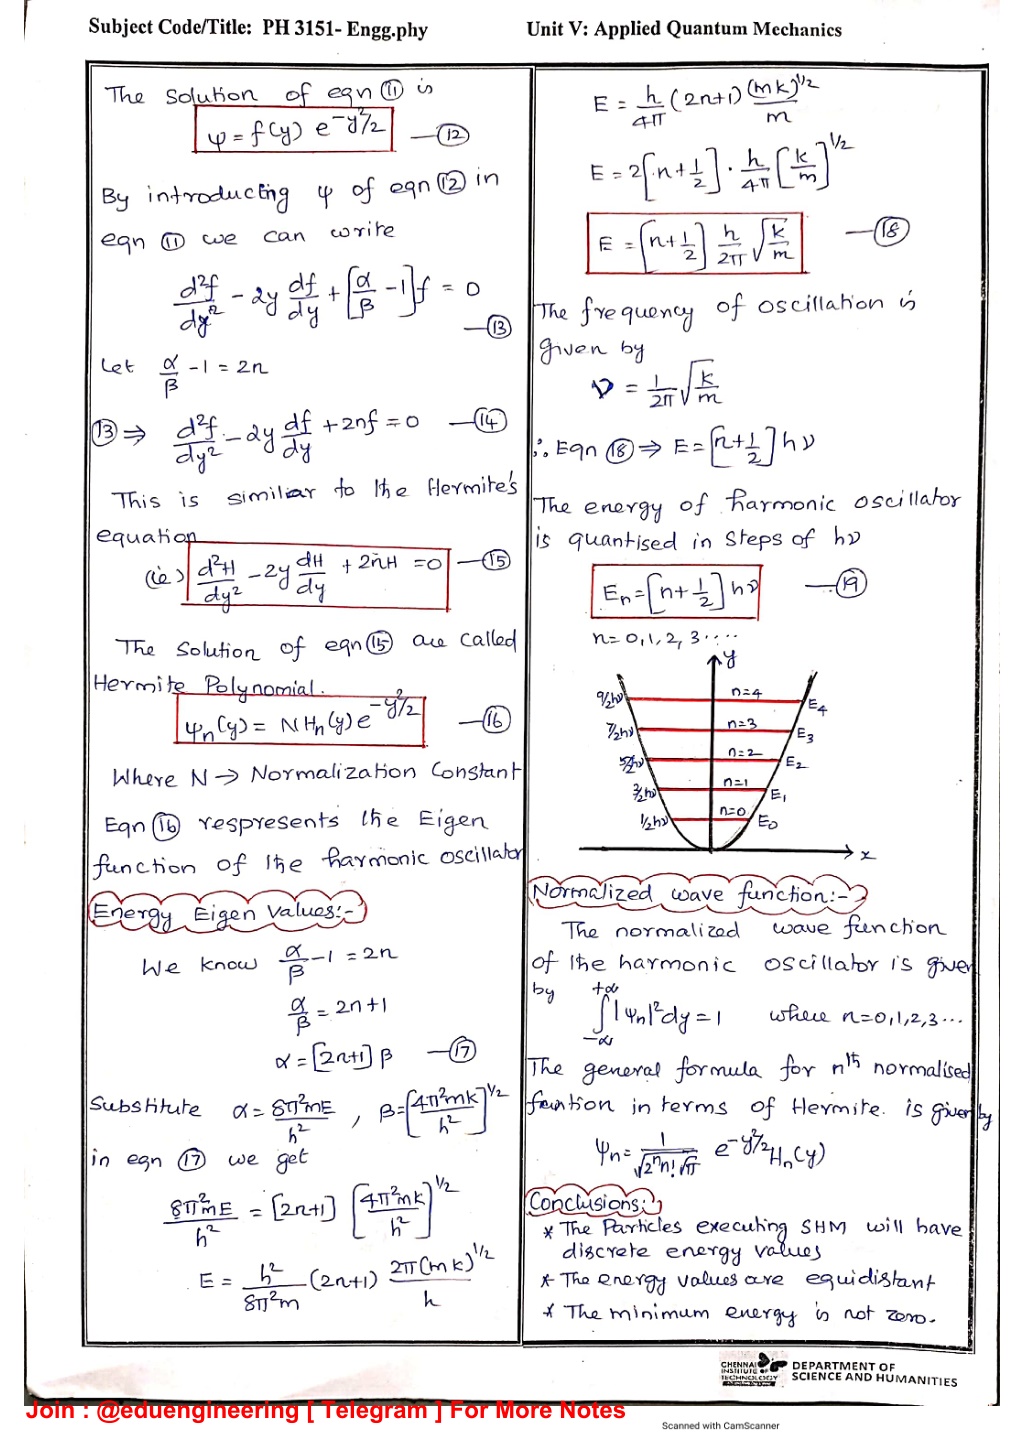 Subject Code/Title: PH 3151- Engg.phy Unit V: Applied Quantum Mechanics
The solution of eqn ⑪ is
ψ = f(y) e^{-y²/2} —⑫
By introducting ψ of eqn ⑫ in
eqn ⑪ we can write
d²f/dy² - 2y df/dy + [α/β - 1]f = 0
—⑬
Let α/β - 1 = 2n
⑬ ⇒ d²f/dy² - 2y df/dy + 2nf = 0 —⑭
This is similiar to the Hermite's
equation
(ie) d²H/dy² - 2y dH/dy + 2nH = 0 —⑮
The solution of eqn ⑮ are called
Hermite Polynomial.
ψn(y) = NHn(y) e^{-y²/2} —⑯
Where N → Normalization Constant
Eqn ⑯ respresents the Eigen
function of the harmonic oscillator
Energy Eigen Values:-
We know α/β - 1 = 2n
α/β = 2n+1
α = [2n+1] β —⑰
Substitute α = 8π²mE/h² , β = [4π²mk/h²]^{1/2}
in eqn ⑰ we get
8π²mE/h² = [2n+1] [4π²mk/h²]^{1/2}
E = h²/8π²m (2n+1) 2π(mk)^{1/2}/h
E = h/4π (2n+1) (mk)^{1/2}/m
E = 2[n+1/2] · h/4π [k/m]^{1/2}
E = [n+1/2] h/2π √k/m —⑱
The frequency of oscillation is
given by
ν = 1/2π √k/m
∴ Eqn ⑱ ⇒ E = [n+1/2] hν
The energy of harmonic oscillator
is quantised in steps of hν
En = [n+1/2] hν —⑲
n = 0, 1, 2, 3 ....
y
9/2hν n=4 E4
7/2hν n=3 E3
5/2hν n=2 E2
3/2hν n=1 E1
1/2hν n=0 E0
x
Normalized wave function:-
The normalized wave function
of the harmonic oscillator is given
by ∫_{-∞}^{+∞} |ψn|² dy = 1 where n=0,1,2,3...
The general formula for nth normalised
funtion in terms of Hermite. is given by
ψn = 1/√2ⁿn!√π e^{-y²/2} Hn(y)
Conclusions:-
* The Particles executing SHM will have
discrete energy values
* The energy values are equidistant
* The minimum energy is not zero.
CHENNAI
INSTITUTE OF
TECHNOLOGY
DEPARTMENT OF
SCIENCE AND HUMANITIES
Join : @eduengineering [ Telegram ] For More Notes
Scanned with CamScanner